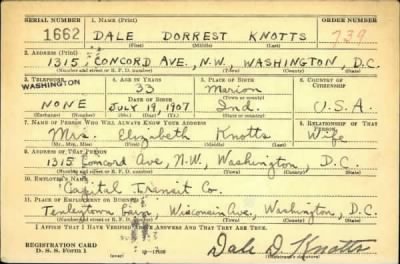 SERIAL NUMBER 1. NAME (Print) ORDER NUMBER
1662 DALE DORREST KNOTTS 739
(First) (Middle) (Last)
2. ADDRESS (Print)
1315, CONCORD AVE., N.W., WASHINGTON, D.C.
(Number and street or R. F. D. number) (Town) (County) (State)
3. TELEPHONE 4. AGE IN YEARS 5. PLACE OF BIRTH 6. COUNTRY OF CITIZENSHIP
WASHINGTON 33 Marion
DATE OF BIRTH (Town or county)
NONE JULY 19, 1907 Ind. U.S.A.
(Mo.) (Day) (Yr.) (State or country)
7. NAME OF PERSON WHO WILL ALWAYS KNOW YOUR ADDRESS 8. RELATIONSHIP OF THAT PERSON
Mrs. Elizabeth Knotts Wife
(Mr., Mrs., Miss) (First) (Middle) (Last)
9. ADDRESS OF THAT PERSON
1315 Concord Ave, N.W., Washington, D.C.
(Number and street or R. F. D. number) (Town) (County) (State)
10. EMPLOYER'S NAME
Capital Transit Co.
11. PLACE OF EMPLOYMENT OR BUSINESS
Tenleytown Barn, Wisconsin Ave., Washington, D.C.
(Number and street or R. F. D. number) (Town) (County) (State)
I AFFIRM THAT I HAVE VERIFIED ABOVE ANSWERS AND THAT THEY ARE TRUE.
REGISTRATION CARD
D. S. S. Form 1
Dale D. Knotts
(Registrant's signature)